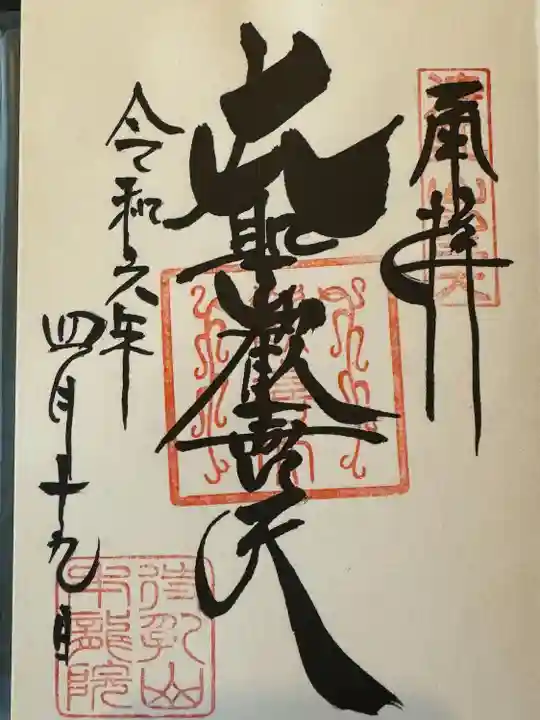 奉拝
大聖歓喜天
令和六年
四月十九日
待乳山
本龍院